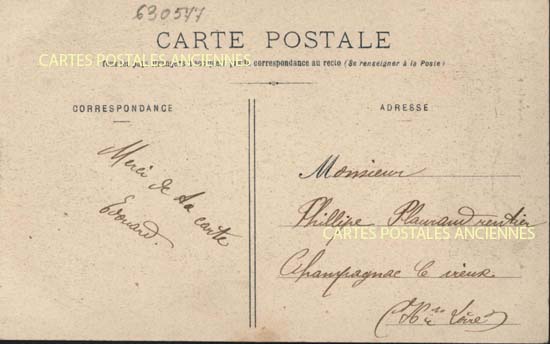 630577
CARTE POSTALE
CARTES POSTALES ANCIENNES
correspondance au recto (Se renseigner à la Poste)
CORRESPONDANCE
ADRESSE
Merci de ta carte
Edouard.
Monsieur
Phillipe Plauraud rentier
CARTES POSTALES ANCIENNES
Champagnac le vieux
(Hte Loire)